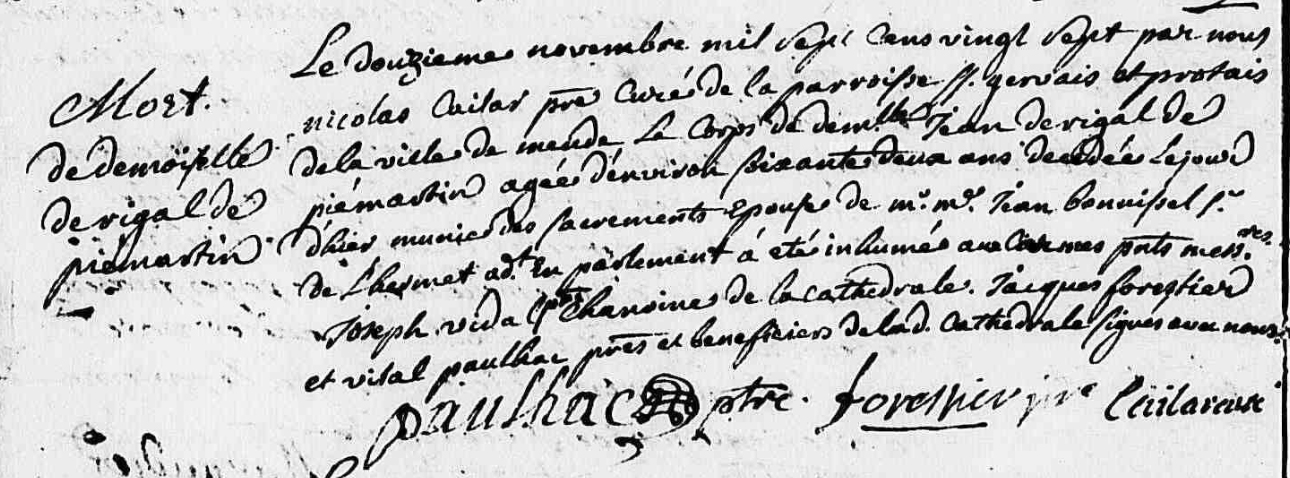 Mort.
de demoiselle
de rigal de
piemartin
Le douzieme novembre mil sept cens vingt sept par nous
nicolas Cailar pre Curé de la parroisse SS. gervais et protais
de la ville de mende, Le Corps de dem.lle Jean de rigal de
piémartin agée d'environ soixante deux ans decedée Le jour
d'hier munie des sacrements Epouse de m.r m.e Jean bonuissel s.r
de Lhermet ad.t En parlement á eté inhumée aux Carmes pnts mess.res
Joseph vidal ptre Chanoine de la cathedrale. Jacques forestier
et vital paulhac pres et beneficiers de lad. Cathedrale signes avec nous
paulhac ptre. forestier ptre Cailar curé